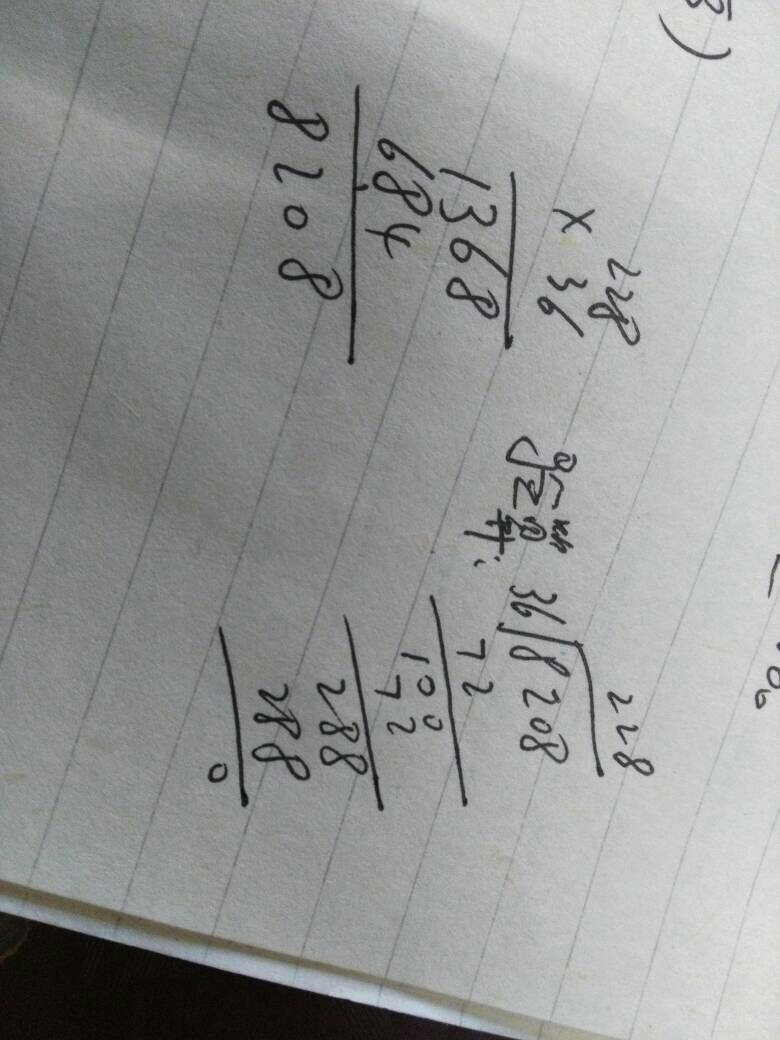 228
× 36
1368
684
8208
228
36 8208
72
100
72
288
288
0